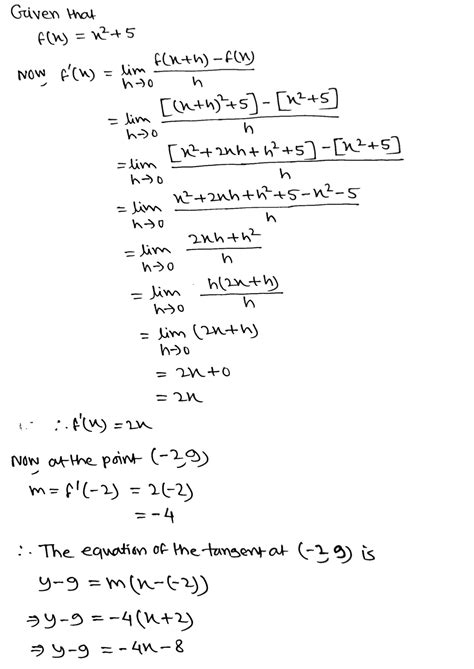 Given that
f(x) = x²+5
Now f'(x) = lim h→0 f(x+h) − f(x) / h
= lim h→0 [(x+h)²+5] − [x²+5] / h
= lim h→0 [x²+2xh+h²+5] − [x²+5] / h
= lim h→0 x²+2xh+h²+5−x²−5 / h
= lim h→0 2xh+h² / h
= lim h→0 h(2x+h) / h
= lim h→0 (2x+h)
= 2x+0
= 2x
∴ f'(x) = 2x
Now at the point (−2,9)
m = f'(−2) = 2(−2)
= −4
∴ The equation of the tangent at (−2,9) is
y−9 = m(x−(−2))
⇒ y−9 = −4(x+2)
⇒ y−9 = −4x−8